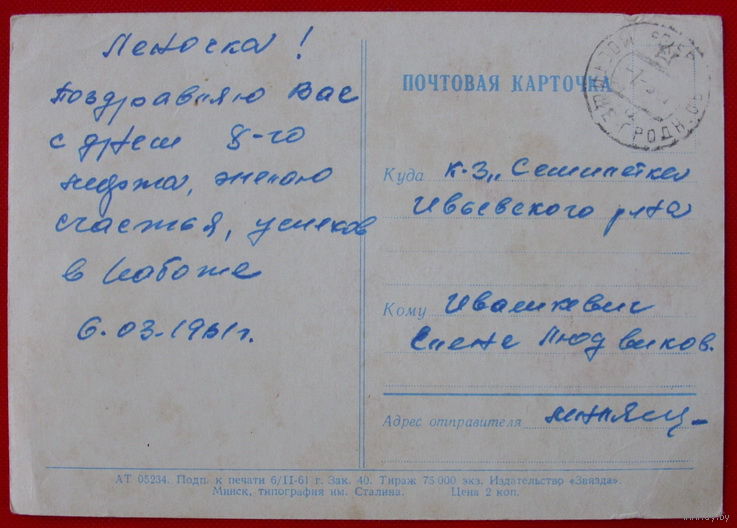 Леночка!
Поздравляю Вас
с днем 8-го
марта, желаю
счастья, успехов
в работе
6.03.1961г.
ПОЧТОВАЯ КАРТОЧКА
Куда к-з „Семилетка
Ивьевского р-на
Кому Ивашкевич
Елене Людвиков.
Адрес отправителя
АТ 05234. Подп. к печати 6/II-61 г. Зак. 40. Тираж 75 000 экз. Издательство «Звязда».
Минск, типография им. Сталина. Цена 2 коп.